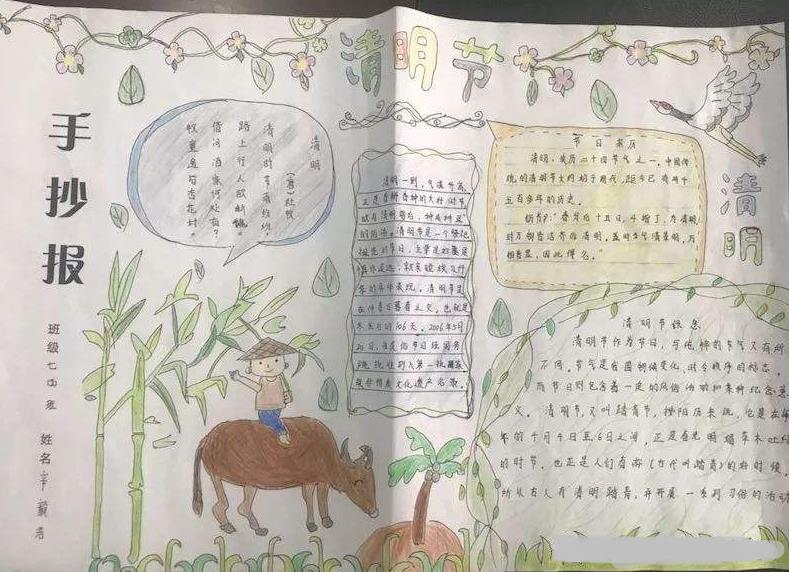 清明节
手抄报
班级七中班
姓名
清明
(唐)杜牧
清明时节雨纷纷,
路上行人欲断魂。
借问酒家何处有?
牧童遥指杏花村。
清明一到,气温升高,
正是春耕春种的大好时节
故有清明前后,种瓜种豆
的俗语。清明节是一个祭祀
祖先的节日,主要是扫墓是
慎终追远
的具体表现。清明节是
在仲春与暮春之交,也就是
冬至后的106天。2006年5月
20日,
批准列入第一批国家
级非物质文化遗产名录。
节日来历
清明,农历二十四节气之一,中国传
统的清明节大约始于周代,距今已有两千
五百多年的历史。
春分后十五日,斗指丁,为清明,
时万物皆洁齐而清明,盖时当气清景明,万
物皆显,因此得名。”
清明
清明节信息
清明节作为节日,与纯粹的节气又有所
不同。节气是我国物候变化、时令顺序的标志,
而节日则包含着一定的风俗活动和某种纪念意
义。清明节,又叫踏青节,按阳历来说,它是在每
年的4月4日至6日之间,正是春光明媚草木吐
的时节,也正是人们春游(古代叫踏青)的好时候,
所以古人有清明踏青,并开展一系列习俗的活动